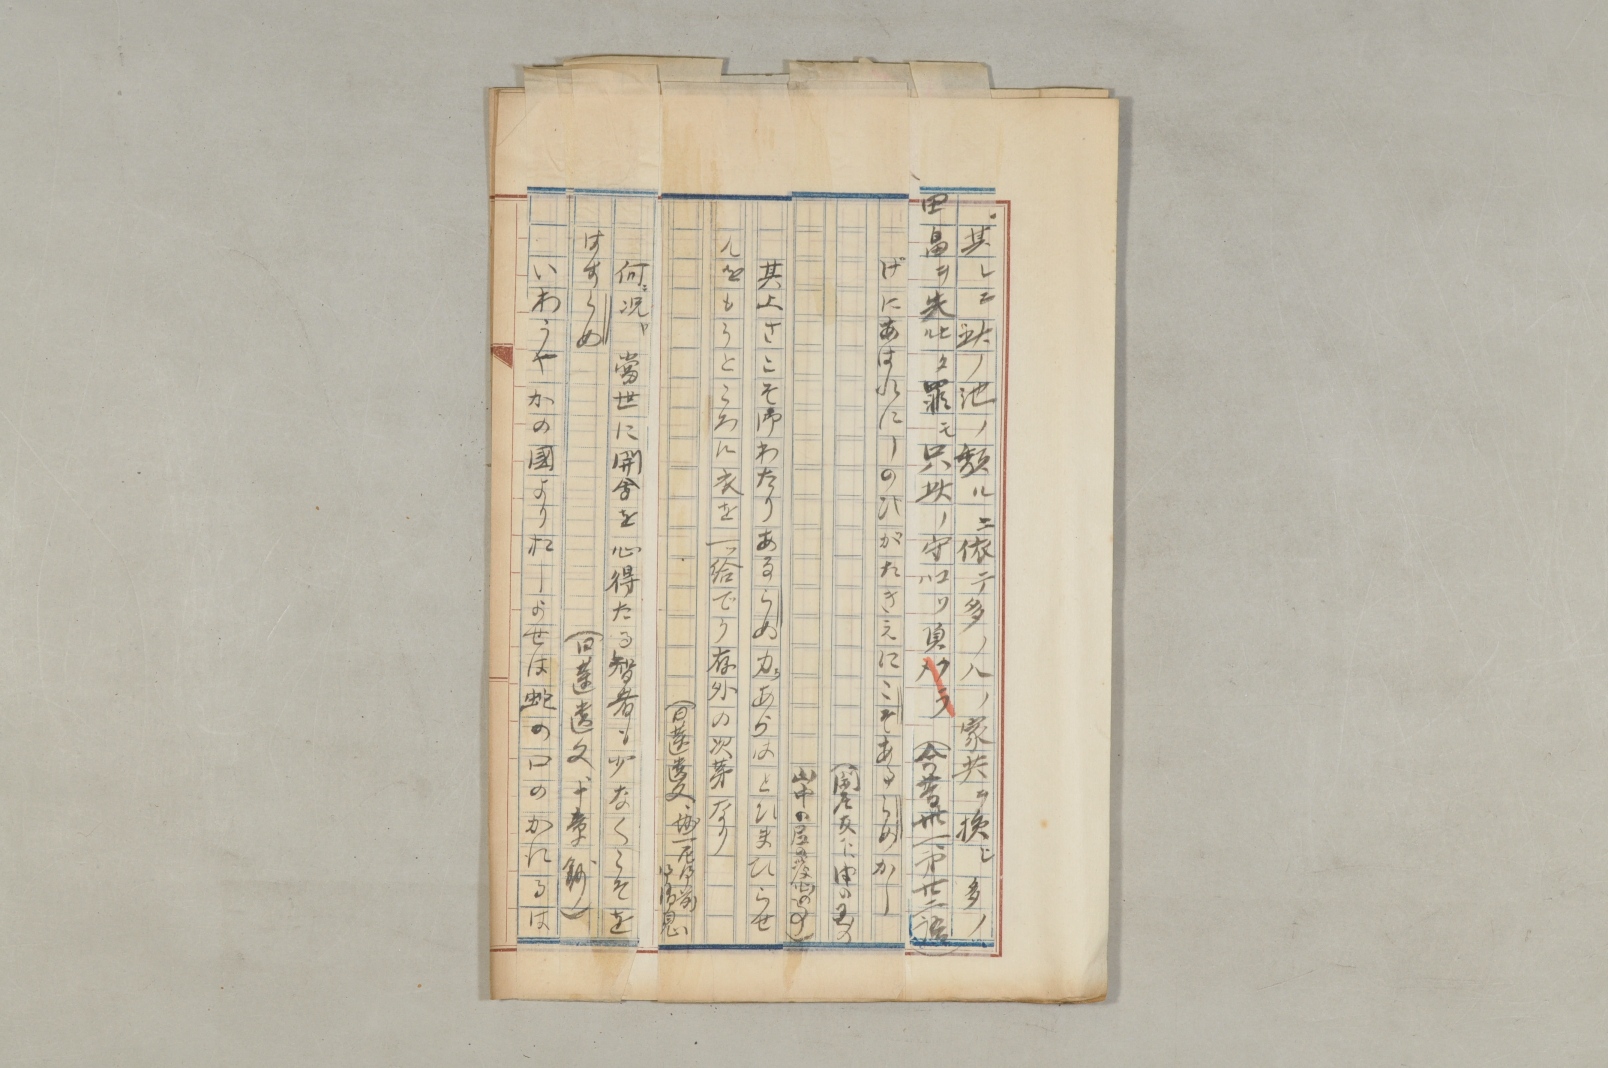 其レニ此ノ池ノ頽ルニ依テ多ノ人ノ家共ヲ損ジ多ノ
田畠ヲ失ヒタル罪モ只此ノ守ノコソ負ラメ
(今昔卅一ノ第廿二語)
げにあはれにしのびがたきえにこそあるらめかし
其上さこそ御わたりあるらめ力あらはとひまひらせ
んとをもうところに衣を一給でう存外の次第なり
(日蓮遺文、
何ニ況ヤ當世に開會を心得たる智者も少なくこそを
はすらめ
(日蓮遺文、十章鈔)
いわうやかの國よりおしよせは蛇の口のかれるは